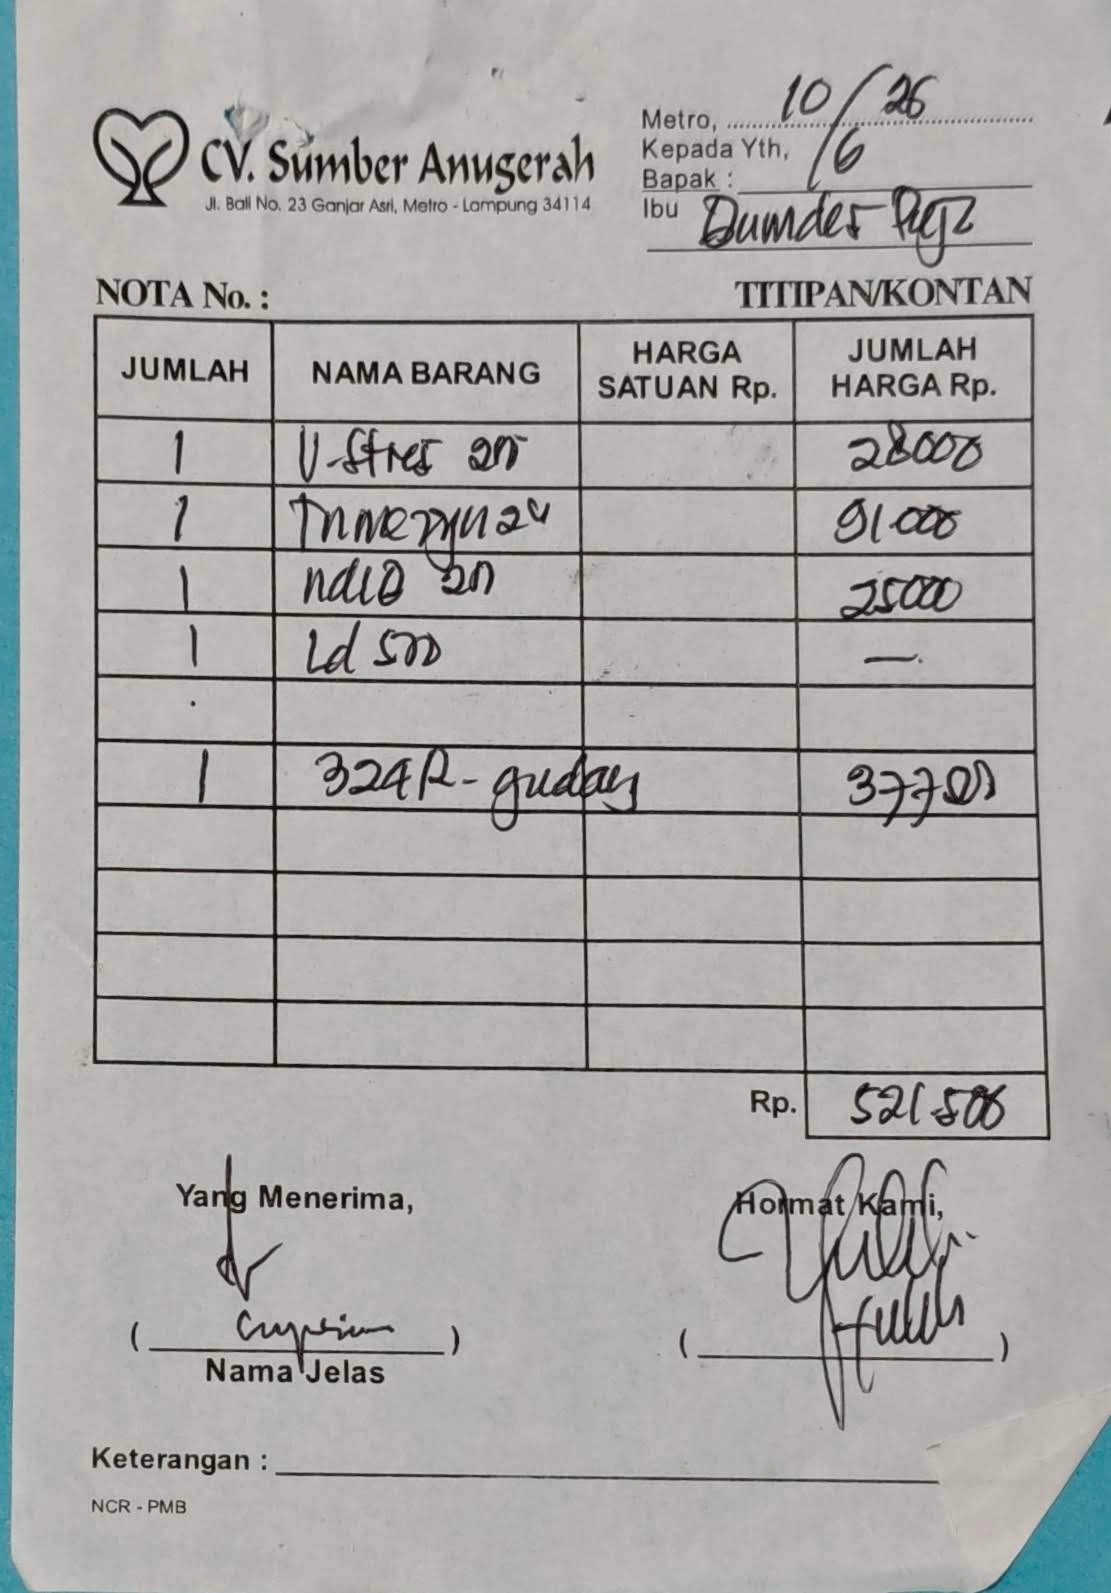 CV. Sumber Anugerah
Jl. Bali No. 23 Ganjar Asri, Metro - Lampung 34114
Metro, 10/6 26
Kepada Yth,
Bapak :
Ibu
NOTA No. :
TITIPAN/KONTAN
JUMLAH NAMA BARANG HARGA SATUAN Rp. JUMLAH HARGA Rp.
1 V-Stres 28000
1 91.000
1 25000
1 Ld 500 —
1 324R- 377500
Rp. 521.500
Yang Menerima,
Hormat Kami,
( )
( )
Nama Jelas
Keterangan :
NCR - PMB